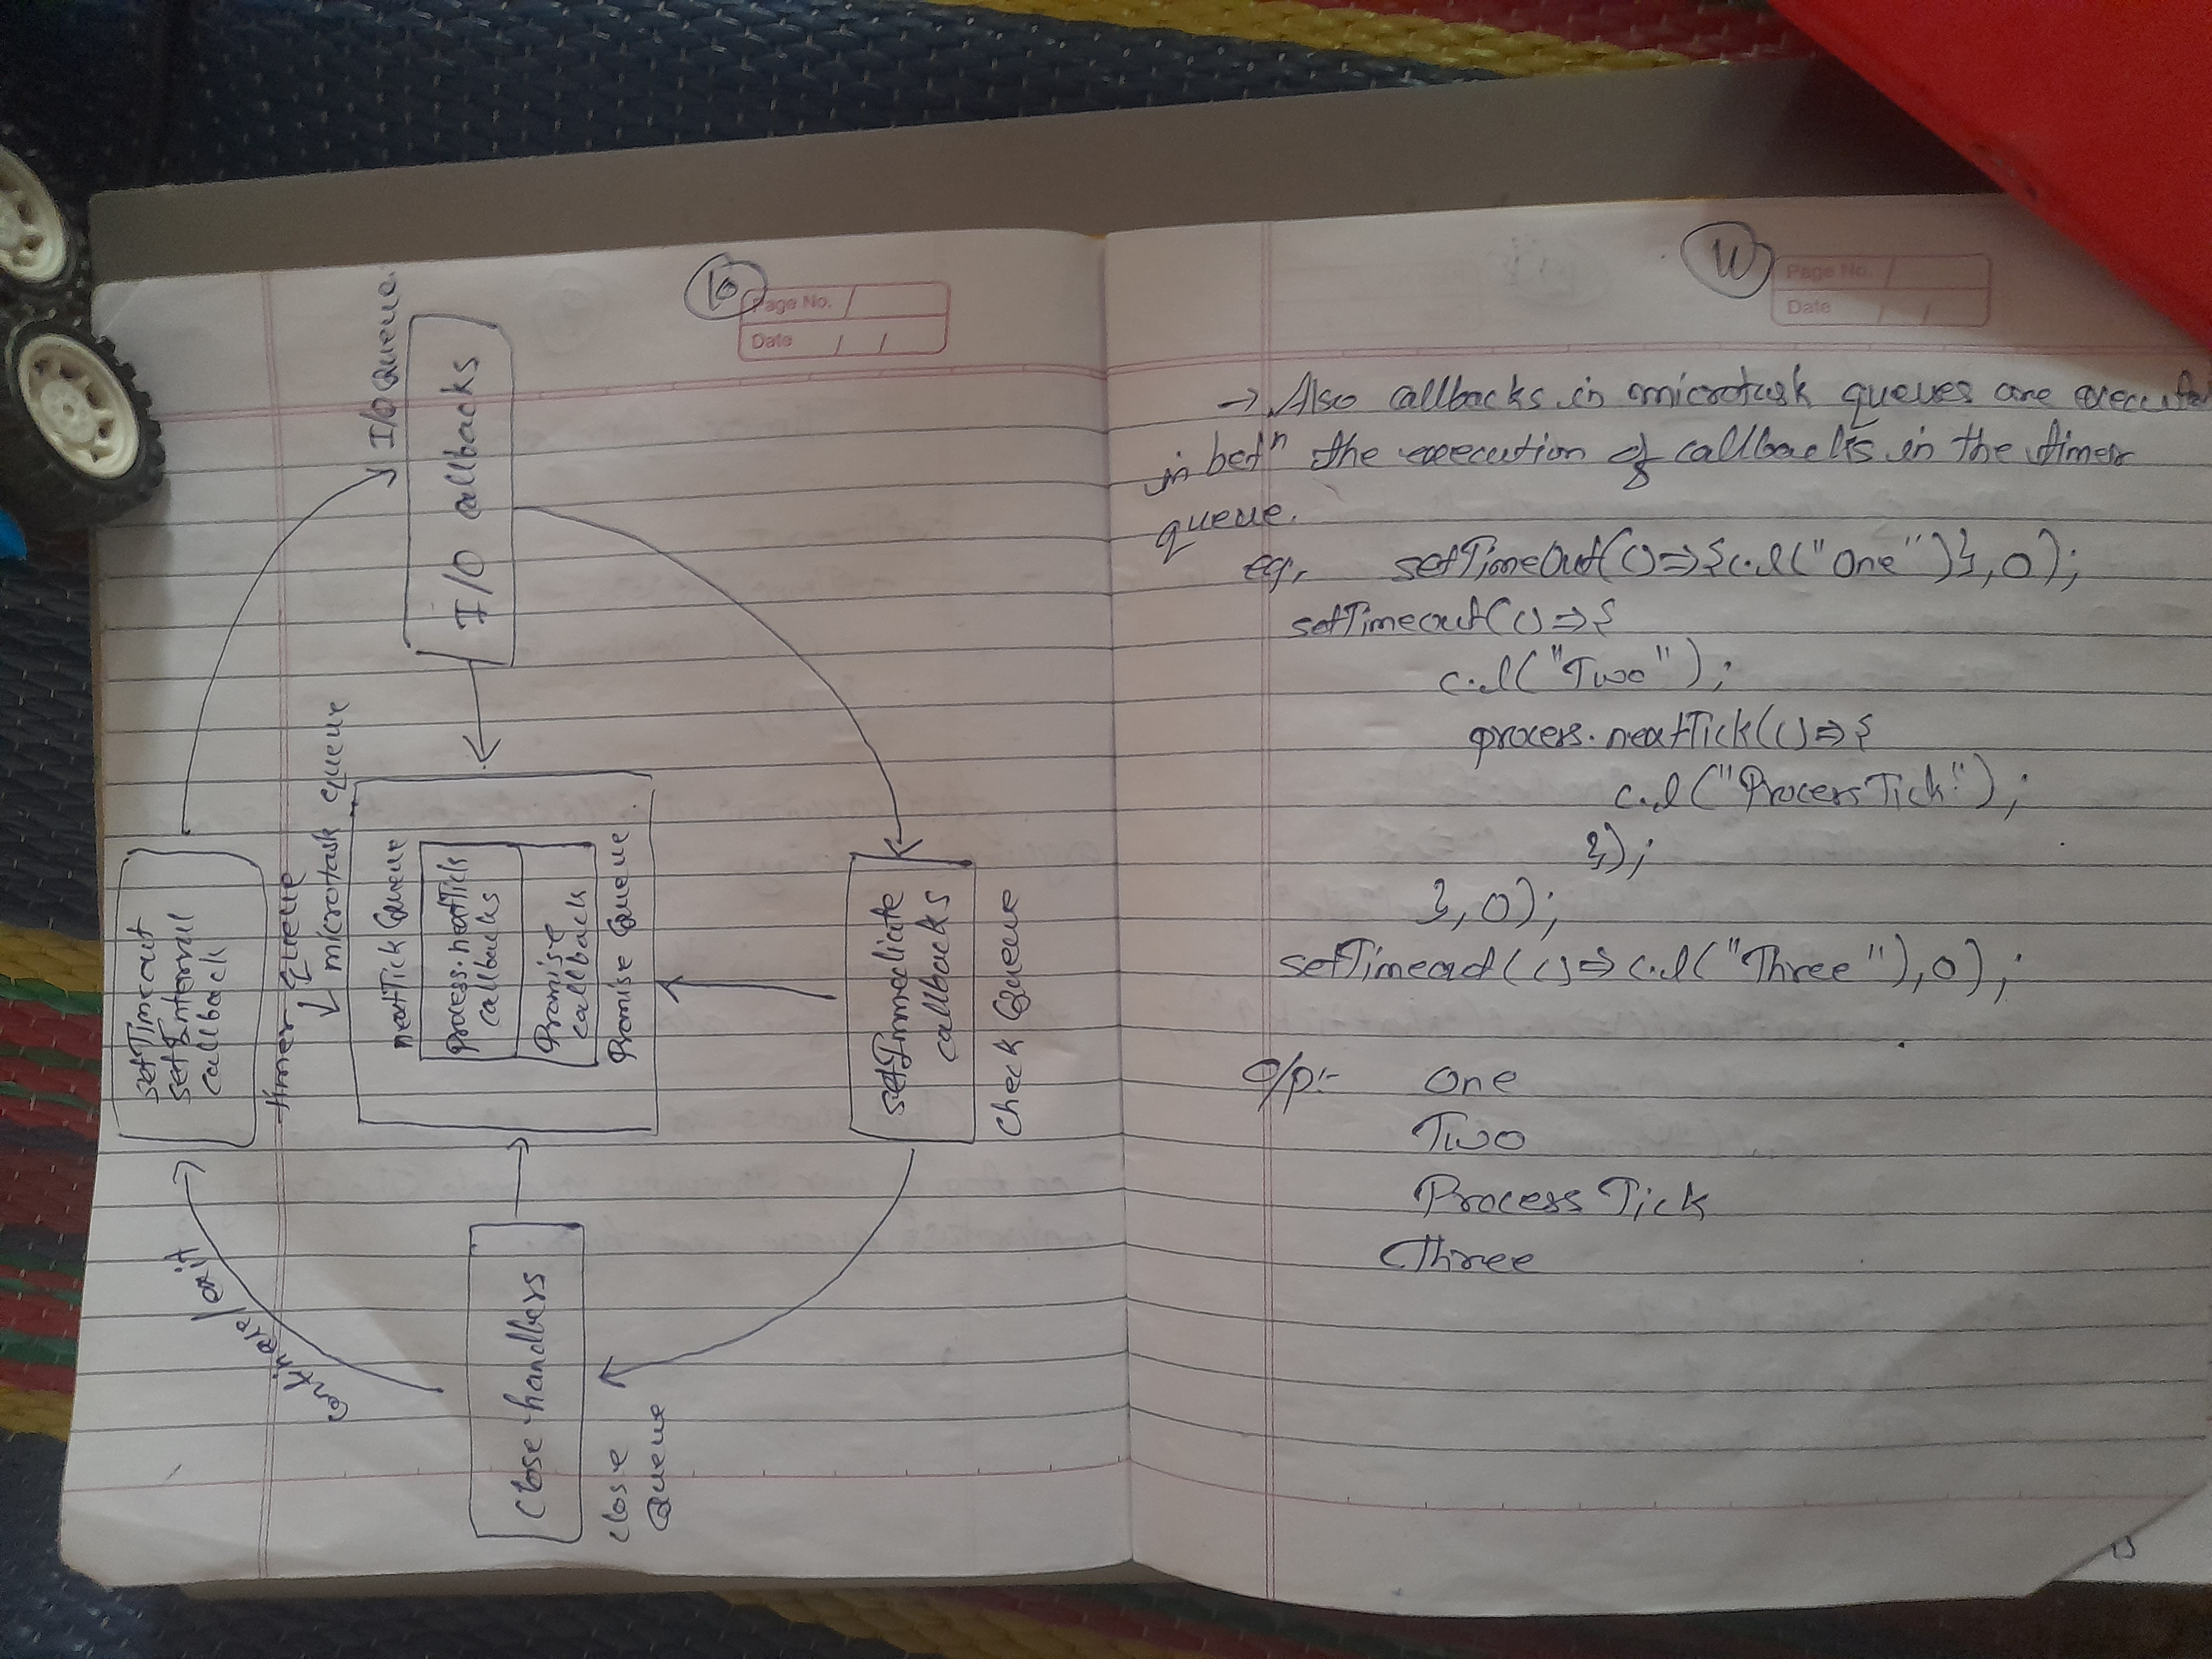 10
Page No.
Date / /
setTimeout
setInterval
callback
timer queue
continue/exit
↓ microtask queue
nextTick Queue
process.nextTick
callbacks
Promise
callback
Promise Queue.
Close handlers
close
Queue
I/O callbacks
I/O Queue.
setImmediate
callbacks
Check Queue
11
Page No.
Date / /
→ Also callbacks in microtask queues are
in betn the execution of callbacks in the timer
queue.
eg, setTimeout(()=>{c.l("One")},0);
setTimeout(()=>{
c.l("Two");
process.nextTick(()=>{
c.l("Process Tick");
});
},0);
setTimeout(()=>c.l("Three"),0);
o/p:- One
Two
Process Tick
Three